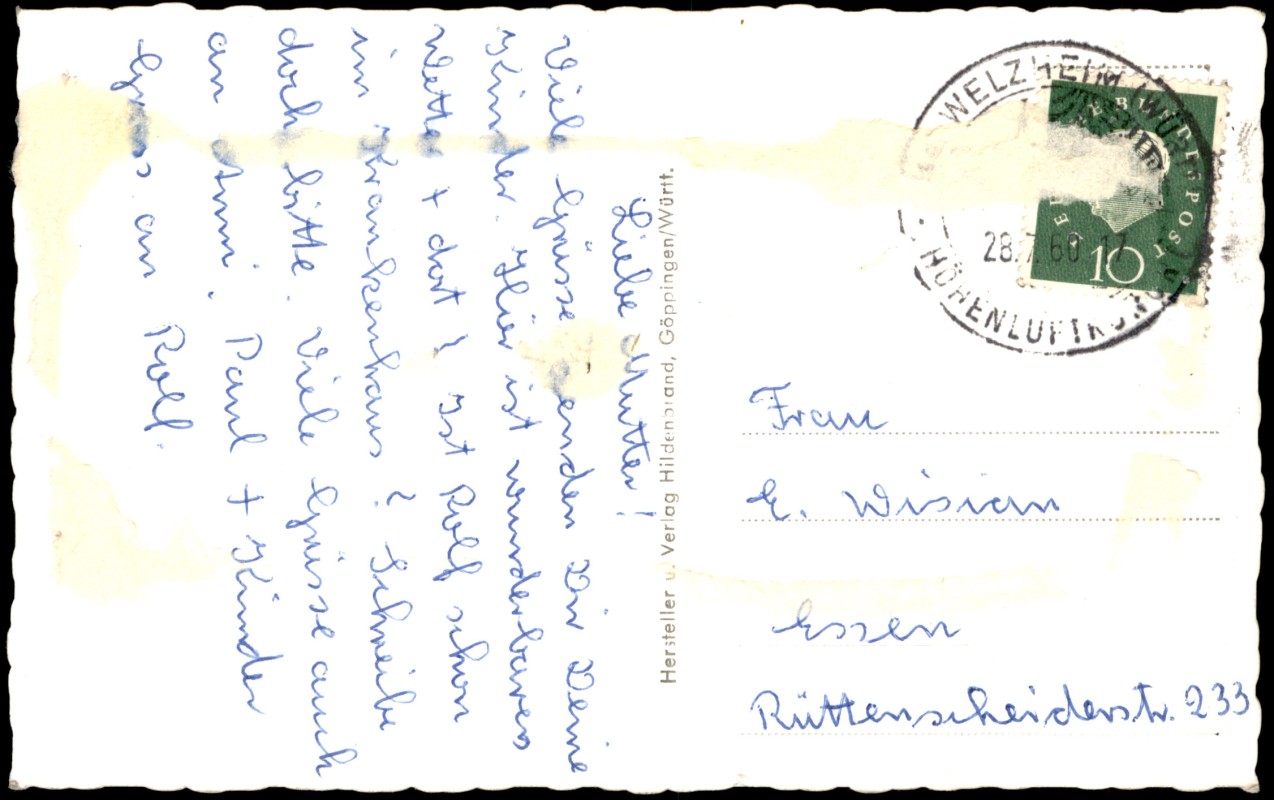 Liebe Mutter!
Viele Grüsse senden Dir Deine
Kinder. Hier ist wunderbares
Wetter + dort? Ist Rolf schon
im Krankenhaus? Schreibe
doch bitte. Viele Grüsse auch
an Anni, Paul + Kinder
Gruss an Rolf.
Hersteller u. Verlag Hildenbrand, Göppingen/Württ.
WELZHEIM (WÜRTT
28.7.60-17
HÖHENLUFTKURORT
POST
10
Frau
E. Wisian
Essen
Rüttenscheiderstr. 233